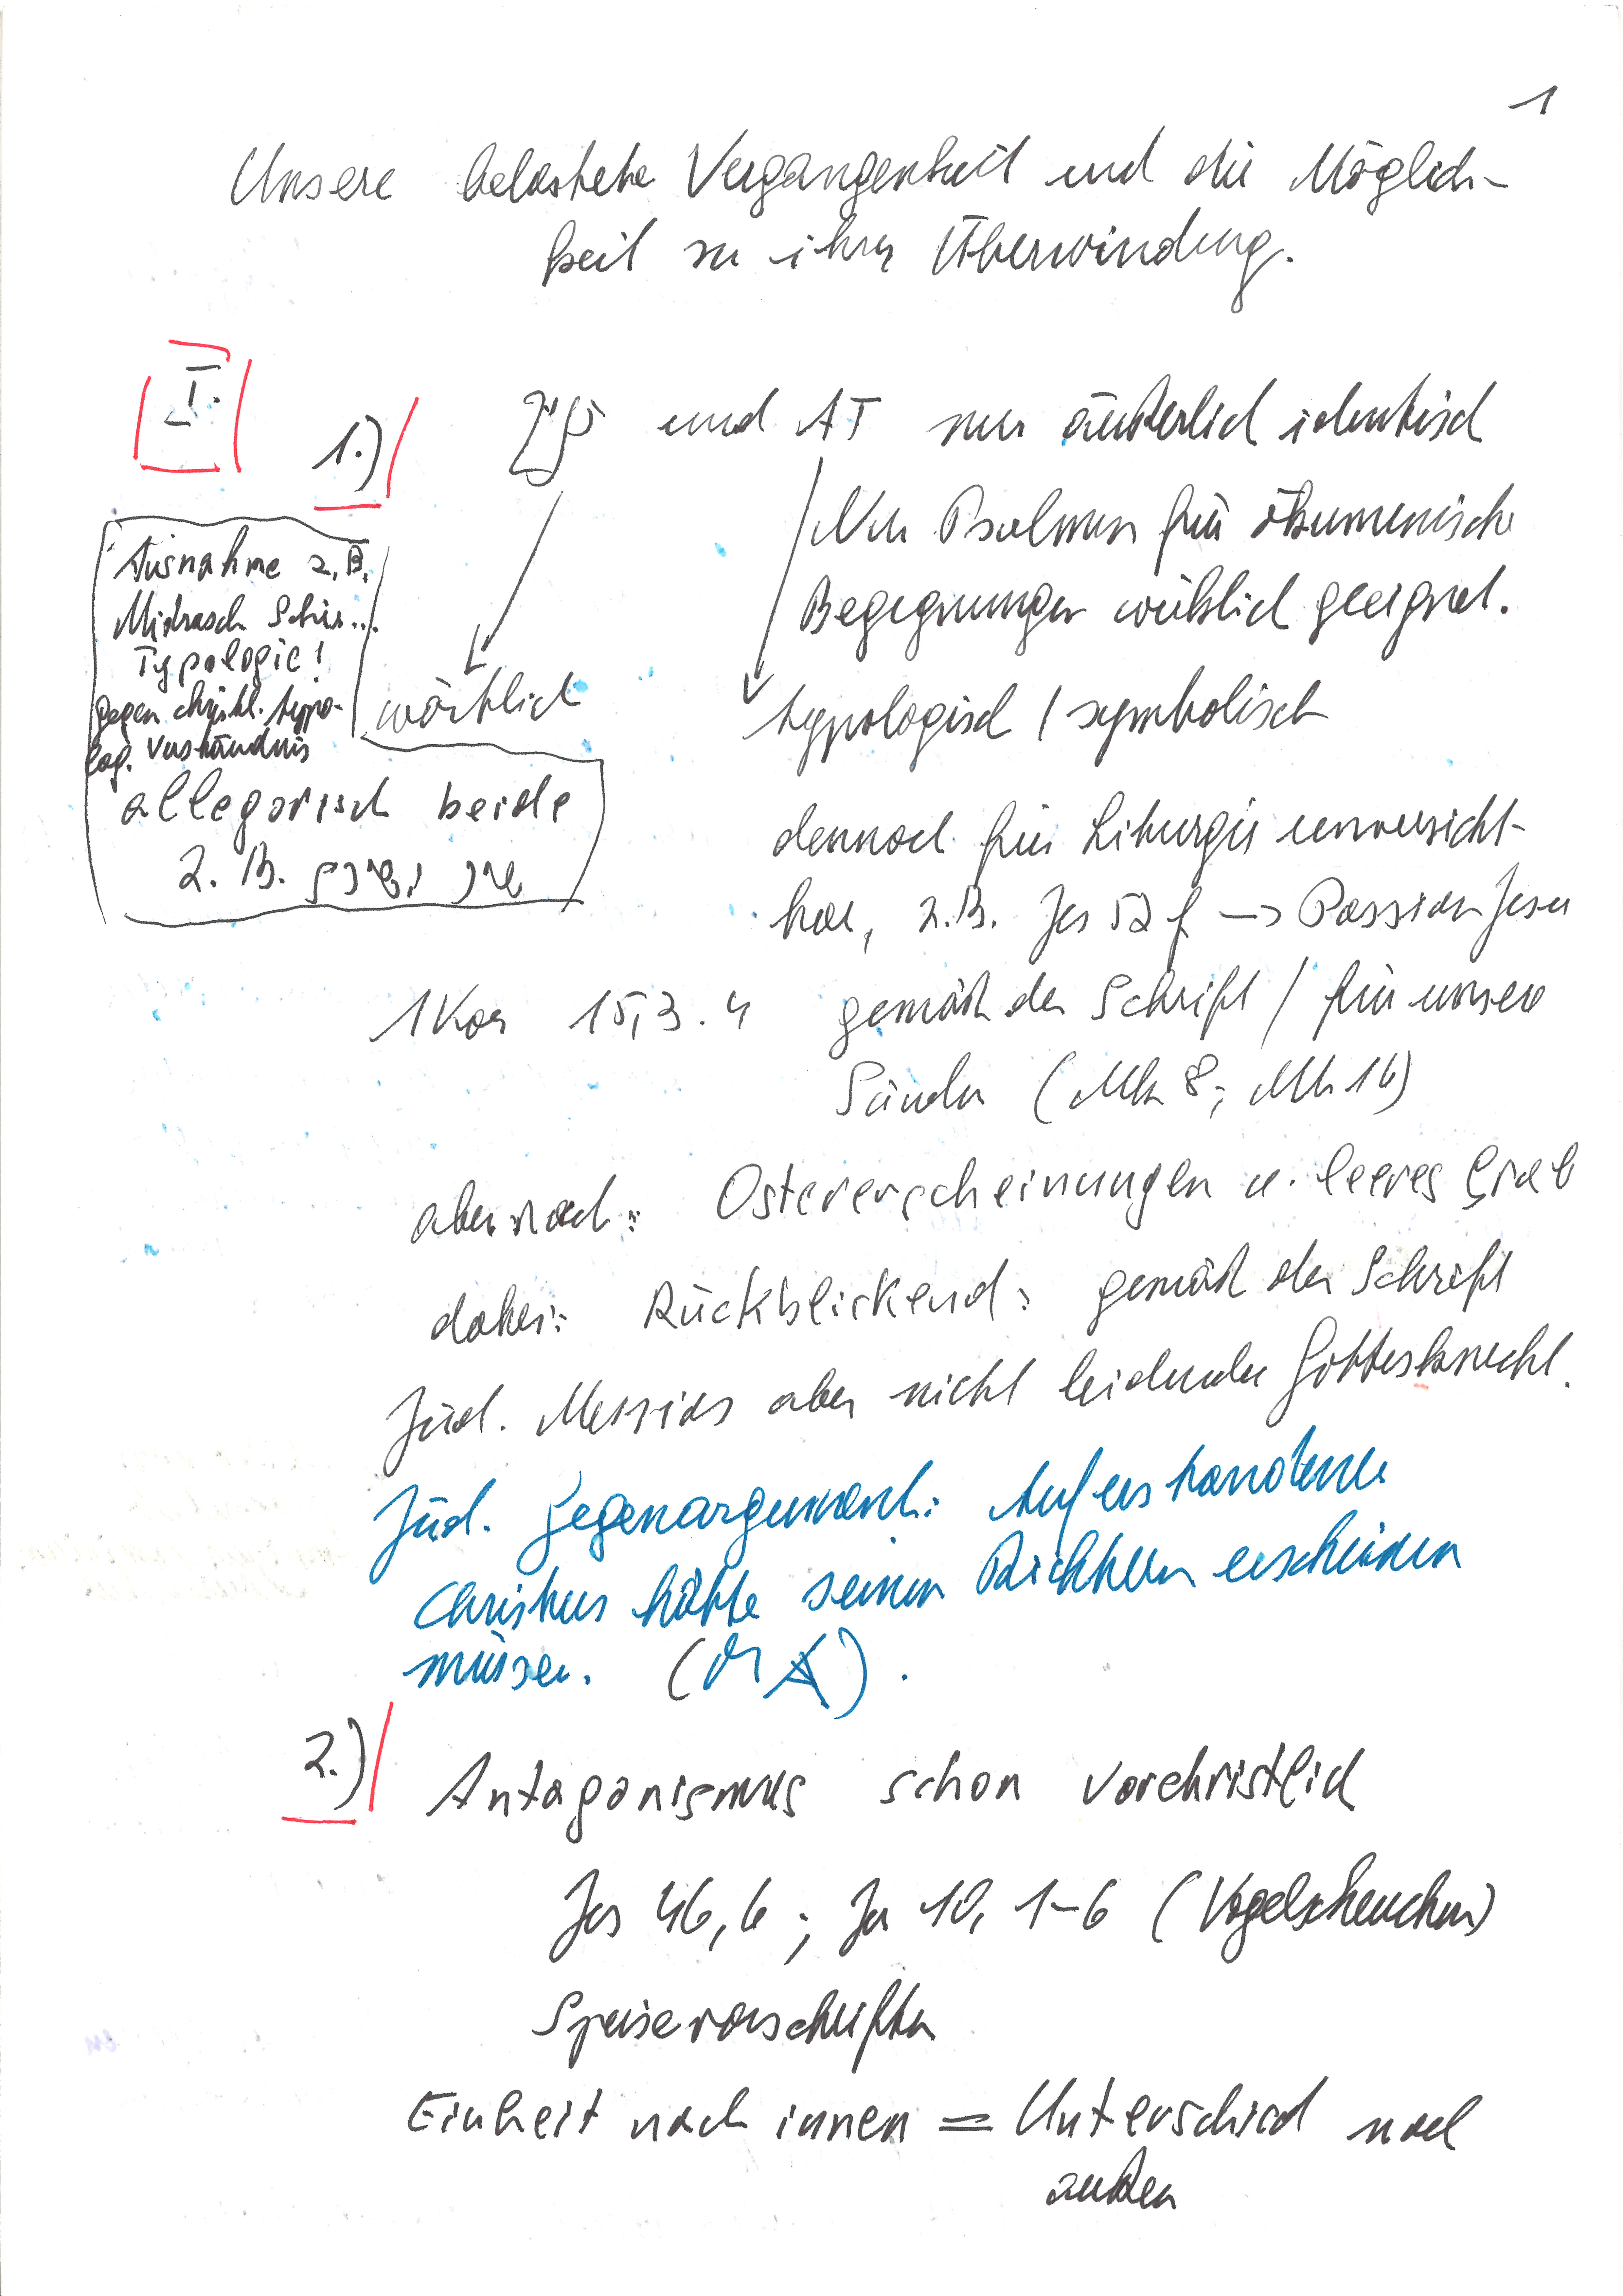 1
Unsere belastete Vergangenheit und die Möglich-
keit zu ihrer Überwindung.
I.
1.)
und AT nur äußerlich identisch
Nur Psalmen für ökumenische
Begegnungen wirklich geeignet.
Ausnahme z.B.
Midrasch Schir...
Typologie!
gegen christl. typo-
log. Verständnis
wörtlich
typologisch / symbolisch
allegorisch beide
z.B. שיר השירים
dennoch für Liturgie unverzicht-
bar, z.B. Jes 52 f → Passion Jesu
1 Kor 15,3.4 gemäß der Schrift / für unsere
Sünden (Mk 8; Mt 16)
aber nach: Ostererscheinungen u. leeres Grab
daher: Rückblickend: gemäß der Schrift
Jüd. Messias aber nicht leidender Gottesknecht.
Jüd. Gegenargument: Auferstandener
Christus hätte seinen Richtern erscheinen
müssen. (MA).
2.)
Antagonismus schon vorchristlich
Jes 46,6; Jer 10, 1-6 (Vogelscheuchen)
Speisevorschriften
Einheit nach innen = Unterschied nach
außen